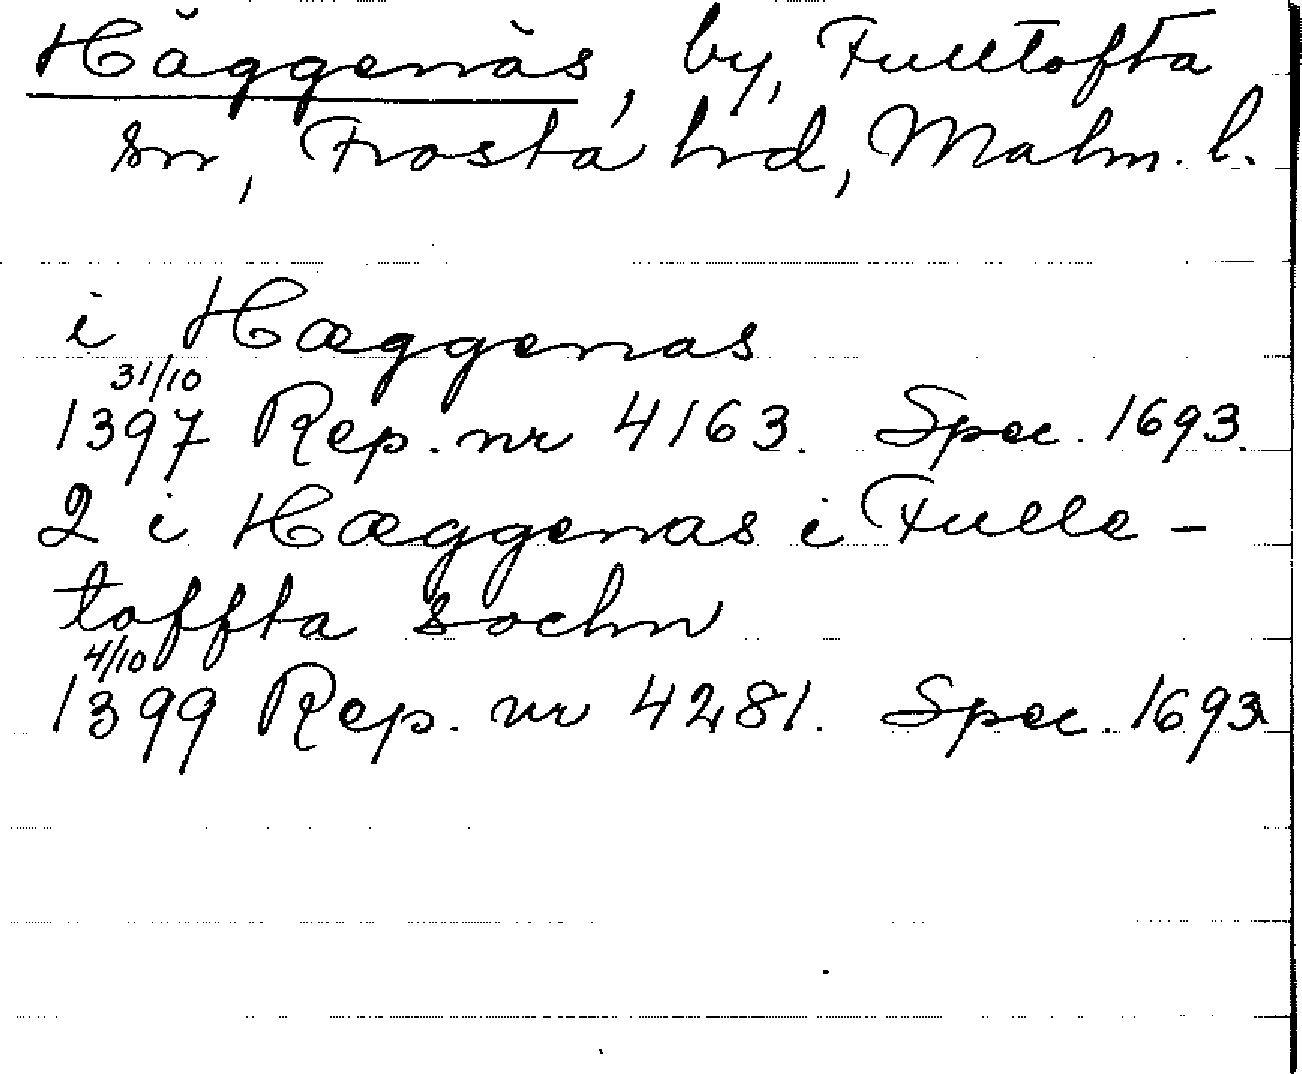 Häggenäs, by, Fulltofta
sn, Frosta hrd, Malm. l.
i Hæggenas
31/10
1397 Rep. nr 4163. Spec. 1693.
2 i Hæggenas i Fulle-
toffta sochn
4/10
1399 Rep. nr 4281. Spec. 1693.